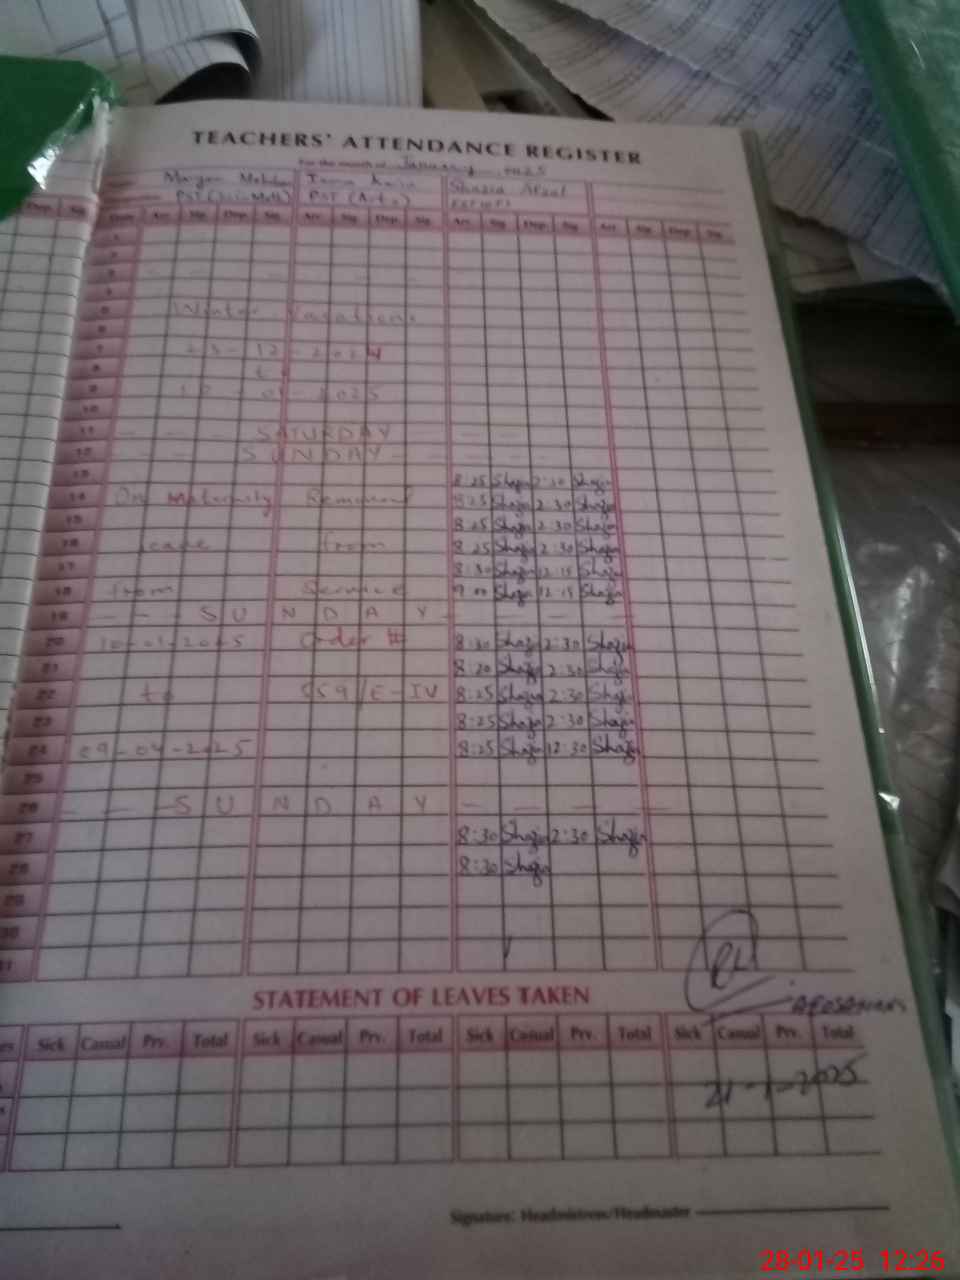 TEACHERS' ATTENDANCE REGISTER
For the month of January 2025
Maryam
PST (Sci-Math) PST (Arts) Shazia Afzal
Dep. Sig. Date Arr. Sig. Dep. Sig. Arr. Sig. Dep. Sig. Arr. Sig. Dep. Sig. Arr. Sig. Dep. Sig.
1
2
3
4
5 Winter Vacations
6
7 23-12-2024
8 to
9 2025
10
11 SATURDAY
12 SUNDAY
13 8:25 Shazia 2:30 Shazia
14 On Maternity Removed 8:25 Shazia 2:30 Shazia
15 8:25 Shazia 2:30 Shazia
16 leave from 8:25 Shazia 2:30 Shazia
17 8:30 Shazia 12:15 Shazia
18 from Service 9:00 Shazia 12:15 Shazia
19 SUNDAY
20 10-01-2025 Order # 8:30 Shazia 2:30 Shazia
21 8:20 Shazia 2:30 Shazia
22 to 559/E-IV 8:25 Shazia 2:30 Shazia
23 8:25 Shazia 2:30 Shazia
24 09-04-2025 8:25 Shazia 12:30 Shazia
25
26 SUNDAY
27 8:30 Shazia 2:30 Shazia
28 8:30 Shazia
29
30
31
STATEMENT OF LEAVES TAKEN
Sick Casual Prv. Total Sick Casual Prv. Total Sick Casual Prv. Total Sick Casual Prv. Total
21-1-2025
Signature: Headmistress/Headmaster
28-01-25 12:26